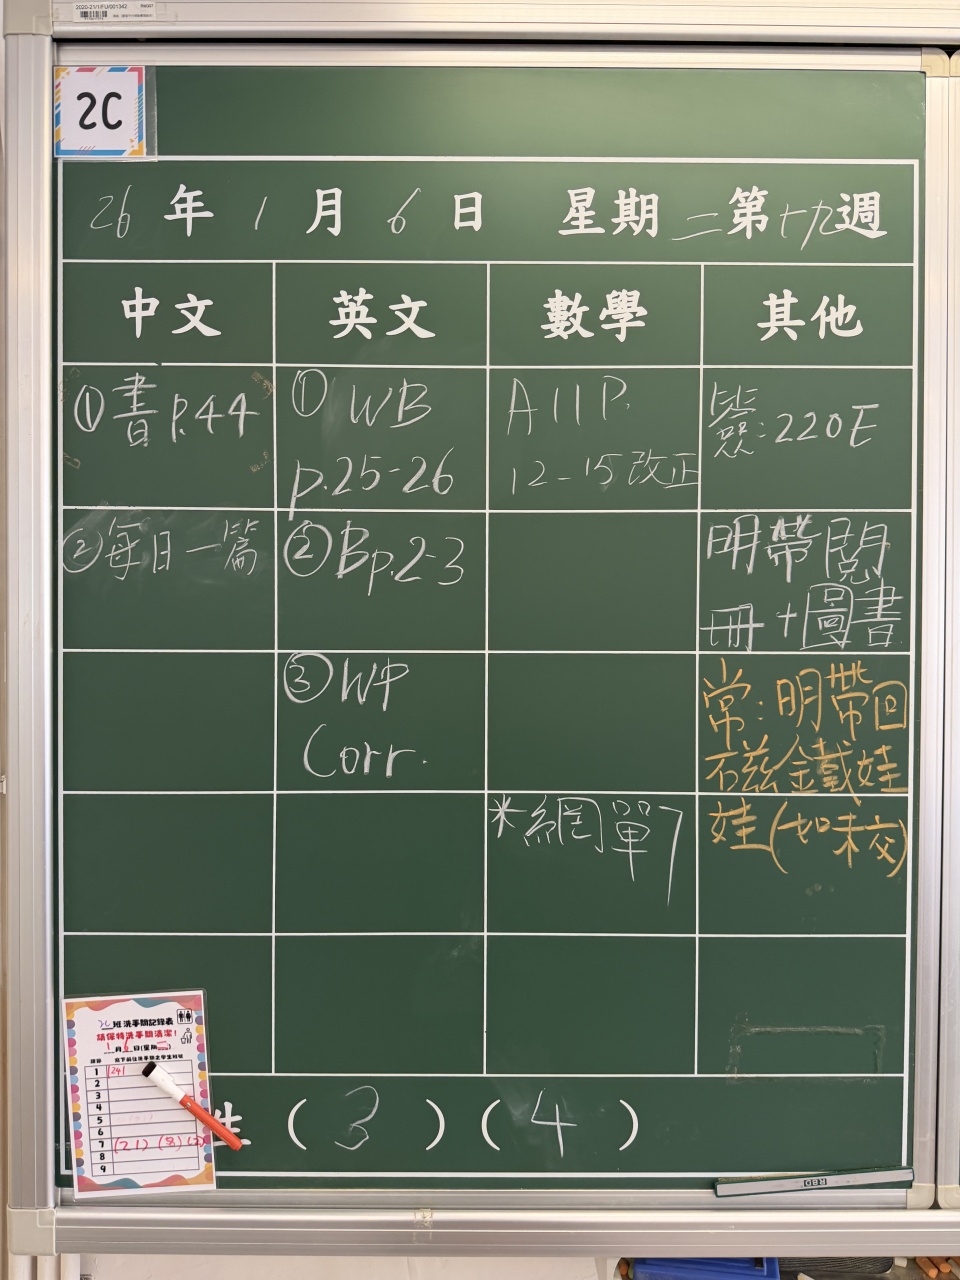 2020-21/1/FU/001342
2C
26 年 1 月 6 日 星期 二 第 十九 週
中文 英文 數學 其他
①書 P.44
②每日一篇
① WB
p.25-26
②Bp.2-3
③WP
Corr.
A11P.
12-15改正
*網單7
簽:220E
明帶閱
冊+圖書
常:明帶回
磁鐵娃
娃(如未交)
2C班洗手間記錄表
請保持洗手間清潔!
1月6日(星期二)
1 (24)
2
3
4
5
6
7 (21) (8)
8
9
生 (3) (4)